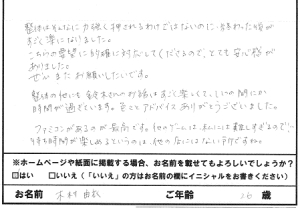 整体はそんなに力強く押されるわけではないのに、終わった後が
すごく楽になりました。
こちらの要望に的確に対応してくださるので、とても安心感が
ありました。
ぜひまたお願いしたいです。
整体の他にも鈴木さんのお話はすごく楽しくて、いつの間にか
時間が過ぎています。色々とアドバイスありがとうございました。
ファミコンがあるのが最高です。他のゲームは私には難しすぎるので
待ち時間が楽しめるというのは、他の店にはない
※ホームページや紙面に掲載する場合、お名前を載せてもよろしいでしょうか？
□はい □いいえ（「いいえ」の方はお名前の欄にイニシャルをお書きください）
お名前 木村 ご年齢 歳